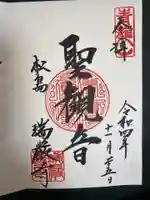 奉拝
令和四年
十一月廿五日
聖観音
松島
瑞巌寺